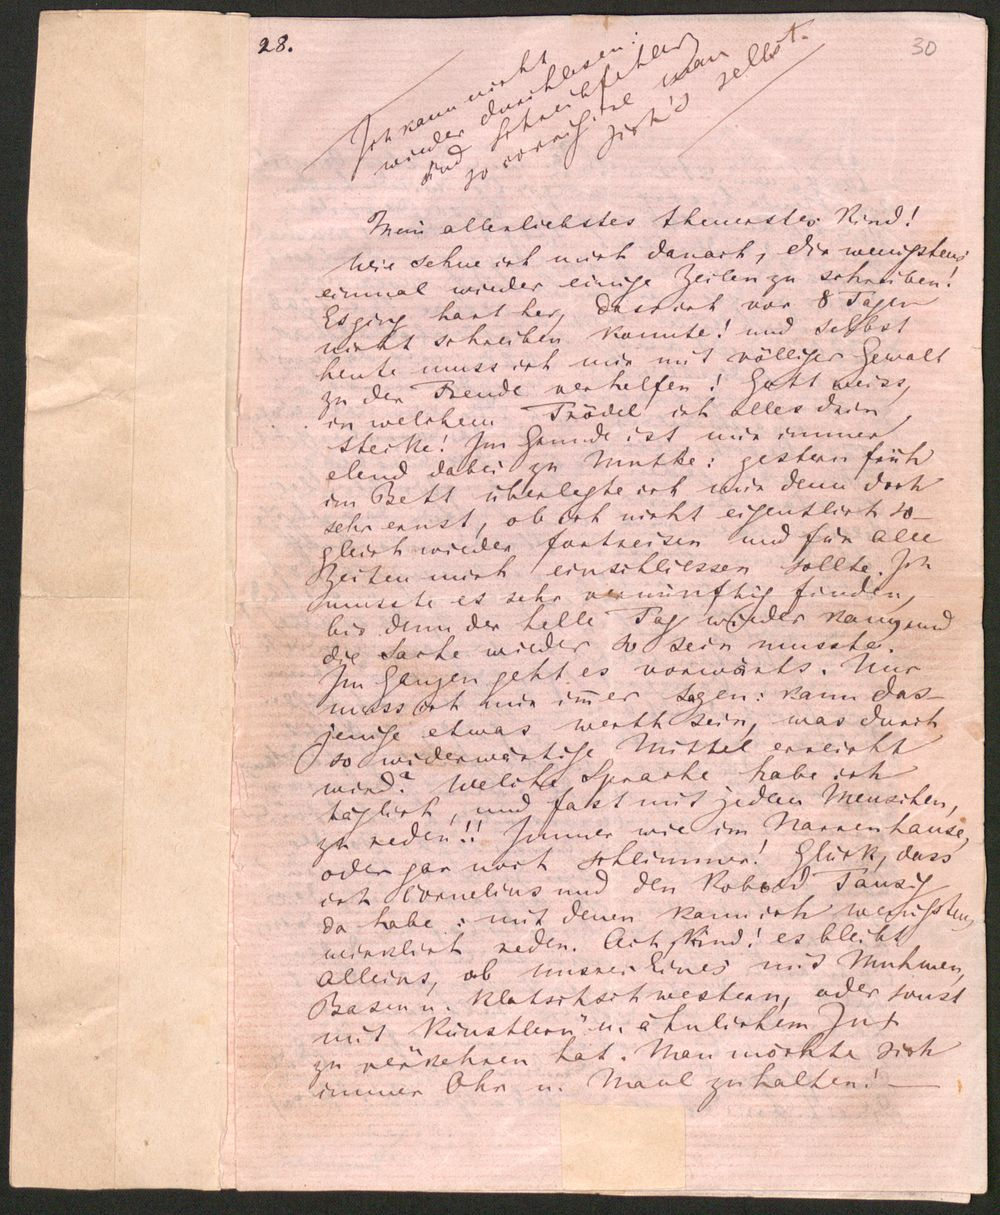 28.
30
Ich kann nicht
wieder durchlesen:
sind Schreibfehler
so corrigire man
sich's selbst.
Mein allerliebstes theuerstes Kind!
Wie sehne ich mich danach, dir wenigstens
einmal wieder einige Zeilen zu schreiben!
Es ging hart her, dass ich vor 8 Tagen
nicht schreiben konnte! und selbst
heute muss ich mir mit völliger Gewalt
zu der Freude verhelfen! Gott weiss,
in welchem Trödel ich alles drin
stecke! Im Grunde ist mir immer
elend dabei zu Muthe: gestern früh
im Bett überlegte ich mir denn doch
sehr ernst, ob ich nicht eigentlich so-
gleich wieder fortreisen und für alle
Zeiten mich einschliessen sollte. Ich
musste es sehr vernünftig finden,
bis denn der helle Tag wieder kam, und
die Sache wieder so sein musste.
Im Ganzen geht es vorwärts. Nur
muss ich mir im̅er sagen: kann das-
jenige etwas werth sein, was durch
so widerwärtige Mittel erreicht
wird? Welche Sprache habe ich
täglich, und fast mit jedem Menschen,
zu reden!! Immer wie im Narrenhause,
oder gar noch schlimmer! Glück, dass
ich Cornelius und den Tausig
da habe: mit denen kann ich wenigstens
wirklich reden. Ach Kind! es bleibt
alleins, ob unsrei Eines mit Muhmen,
Basen u. Klatschschwestern, oder sonst
mit Künstlern u. ähnlichem Zeug
zu verkehren hat. Man möchte sich
immer Ohr u. Maul zuhalten! —